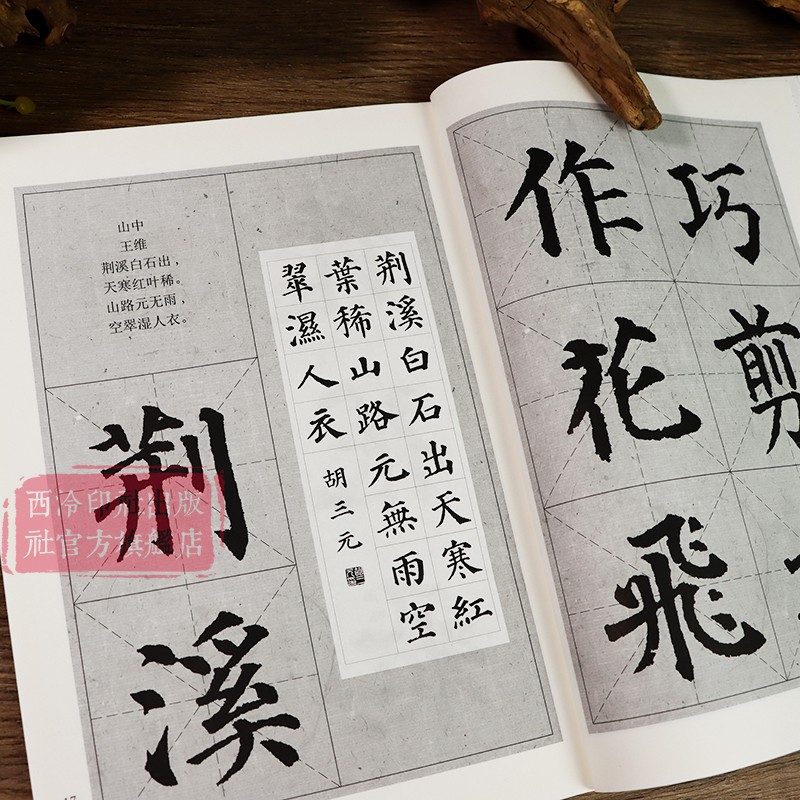 山中
王维
荆溪白石出，
天寒红叶稀。
山路元无雨，
空翠湿人衣。
荆溪白石出天寒紅
葉稀山路元無雨空
翠濕人衣
胡三元
荆
溪
巧
剪
作
花
飛
西泠印社出版
社官方旗舰店
17